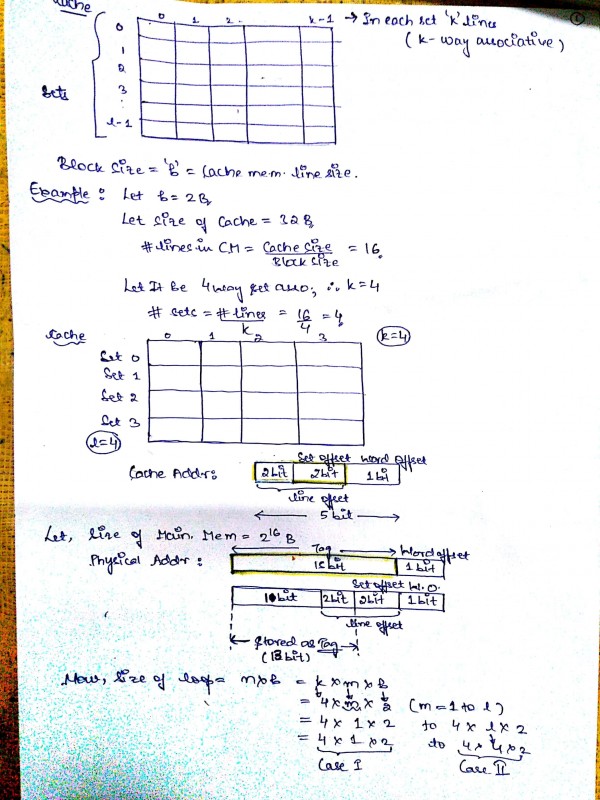 Cache
0 1 2 . k-1 → In each set 'k' lines
(k-way associative)
0
1
2
Sets 3
:
l-1
Block Size = 'b' = Cache mem. line size.
Example : Let b = 2B
Let size of Cache = 32B
# lines in CM = Cache Size / Block Size = 16
Let It be 4 way set asso; ∴ k=4
# sets = # lines / k = 16 / 4 = 4
Cache 0 1 2 3 k=4
Set 0
Set 1
Set 2
Set 3
l=4
Set offset Word offset
Cache Addr: 2bit 2bit 1bit
line offset
5 bit
Let, Size of Main. Mem = 2^16 B
Tag Word offset
Physical Addr : 15bit 1bit
Set offset W.O.
10bit 2bit 2bit 1bit
line offset
Stored as Tag
(13bit)
Now, Size of loop = n×b = k × m × b
= 4 × m × 2 (m = 1 to l)
= 4 × 1 × 2 to 4 × l × 2
= 4 × 1 × 2 to 4 × 4 × 2
Case I Case II